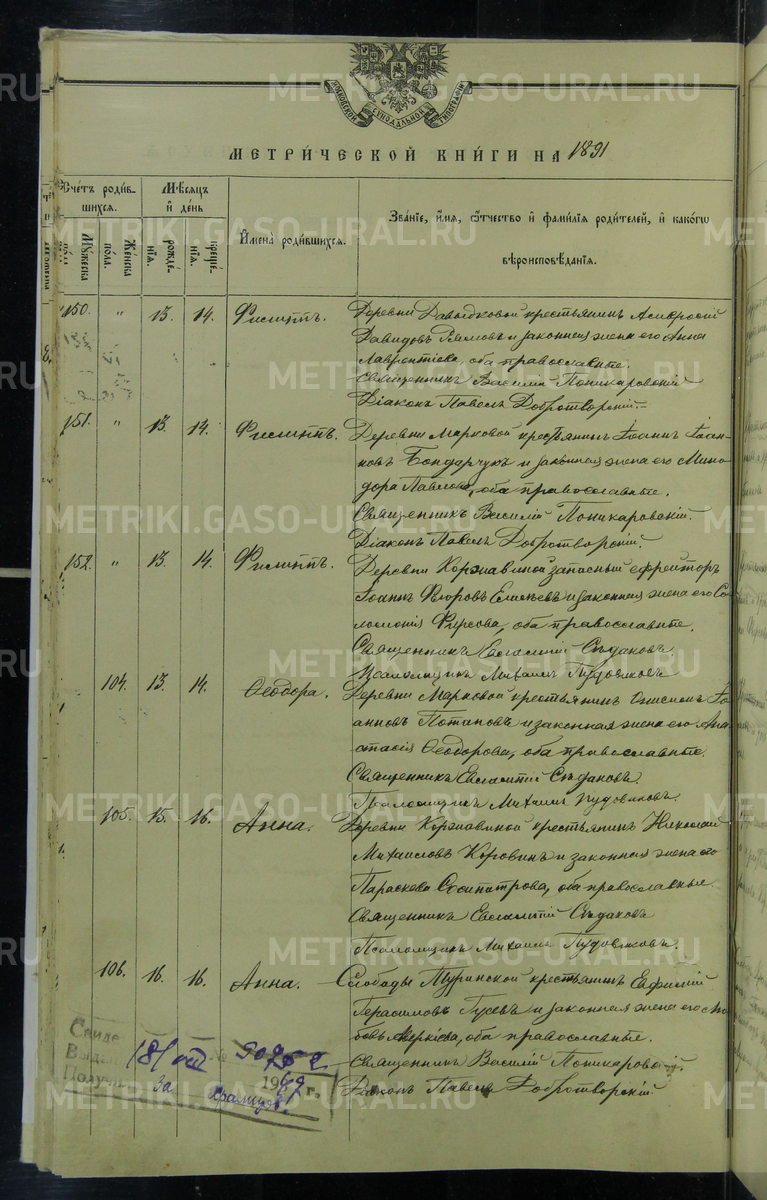 МОСКОВСКОЙ СѴНОДАЛЬНОЙ ТИПОГРАФІИ
МЕТРИЧЕСКОЙ КНИГИ НА 1891
Счетъ родившихся.
Мужеска пола.
Женска пола.
Мѣсяцъ и день
рожденія.
крещенія.
Имена родившихся.
Званіе, имя, отчество и фамилія родителей, и какогѡ
вѣроисповѣданія.
150. " 13. 14. Филиппъ. Деревни Давыдковой крестьянинъ Амвросій
Давидовъ и законная жена его Анна
Лаврентіева, оба православные.
Священникъ Василій Поникаровскій
Діаконъ Павелъ Добротворскій.
151. " 13. 14. Филиппъ. Деревни Марковой крестьянинъ Іоаннъ Іоан-
новъ Бондарчукъ и законная жена его Мино-
дора Павлова, оба православные.
Священникъ Василій Поникаровскій.
Діаконъ Павелъ Добротворскій.
152. " 13. 14. Филиппъ. Деревни Коржавиной запасный ефрейторъ
Іоаннъ Флоровъ Елисѣевъ и законная жена его Со-
ломонія Фирсова, оба православные.
Священникъ Евгѳмпій Сѣдаковъ
Псаломщикъ Михаилъ Пудовиковъ
104. 13. 14. Ѳеодора. Деревни Марковой крестьянинъ Онисимъ Іо-
анновъ Потаповъ и законная жена его Ана-
стасія Ѳеодорова, оба православные.
Священникъ Сѣдаковъ
Псаломщикъ Михаилъ Пудовиковъ.
105. 15. 16. Анна. Деревни Коржавиной крестьянинъ Николай
Михаиловъ Коровинъ и законная жена его
Параскева Сосипатрова, оба православные
Священникъ Сѣдаковъ
Псаломщикъ Михаилъ Пудовиковъ.
106. 16. 16. Анна. Слободы Туринской крестьянинъ Евфимій
Герасимовъ Гусевъ и законная жена его Лю-
бовь Аверкіева, оба православные.
Священникъ Василій Поникаровскій.
Діаконъ Павелъ Добротворскій.
Свиде
Выдан
Получ
18/VIII
За
1967 г.
METRIKI.GASO-URAL.RU